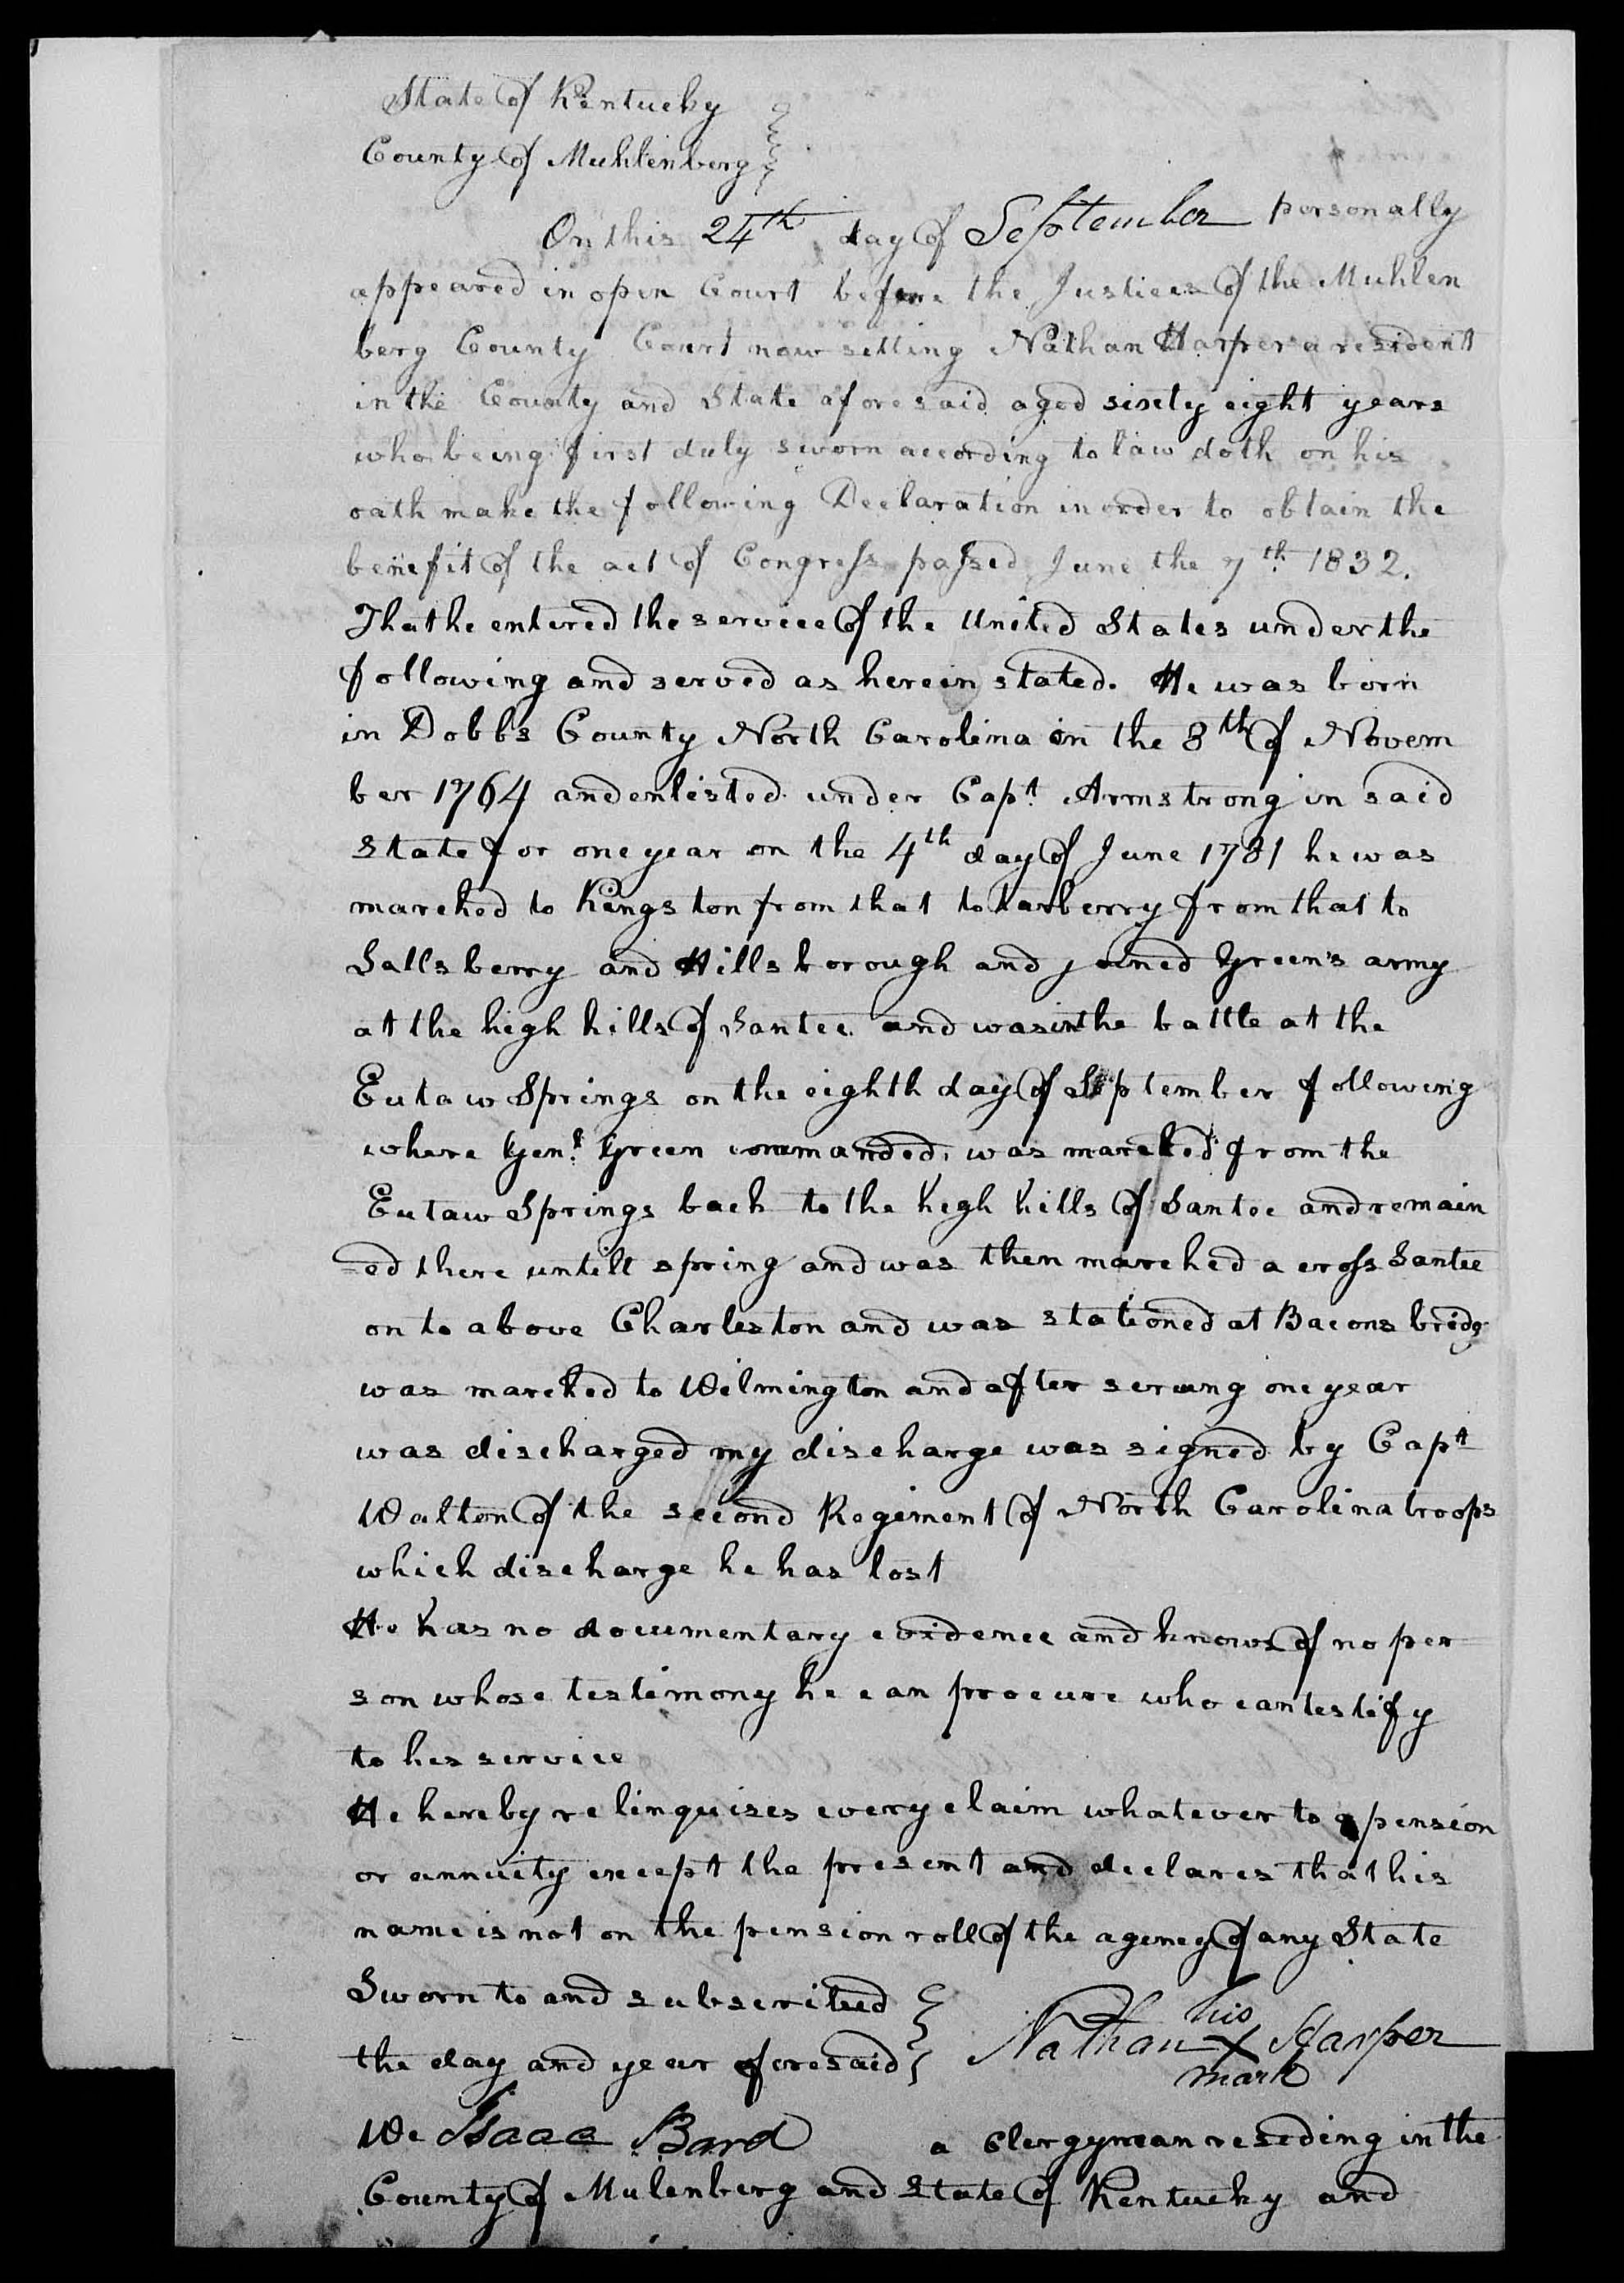 State of Kentucky
County of Muhlenberg
On this 24th day of September personally
appeared in open Court before the Justices of the Muhlen
berg County Court now setting Nathan Harper a resident
in the County and State aforesaid aged sixty eight years
who being first duly sworn according to law doth on his
oath make the following Declaration in order to obtain the
benefit of the act of Congress passed June the 7th 1832.
That he entered the service of the United States under the
following and served as herein stated. He was born
in Dobbs County North Carolina on the 8th of Novem
ber 1764 and enlisted under Capt Armstrong in said
state for one year on the 4th day of June 1781 he was
marched to Kingston from that to tarberry from that to
Sallsberry and Hillsborough and joined Green's army
at the high hills of Santee and was in the battle at the
Eutaw Springs on the eighth day of September following
where Genl Green commanded, was marched from the
Eutaw Springs back to the high hills of Santee and remain
=ed there untill spring and was then marched across Santee
on to above Charleston and was stationed at Bacons bridg
was marched to Wilmington and after serving one year
was discharged my discharge was signed by Capt
Walton of the second Regiment of North Carolina troops
which discharge he has lost
He has no documentary evidence and knows of no per
son whose testimony he can procure who can testify
to his service
He hereby relinquises every claim whatever to a pension
or annuity except the present and declares that his
name is not on the pension roll of the agency of any State
Sworn to and subscribed
the day and year aforesaid
Nathan his X mark Harper
We Isaac Bard a Clergyman residing in the
County of Mulenberg and State of Kentucky and